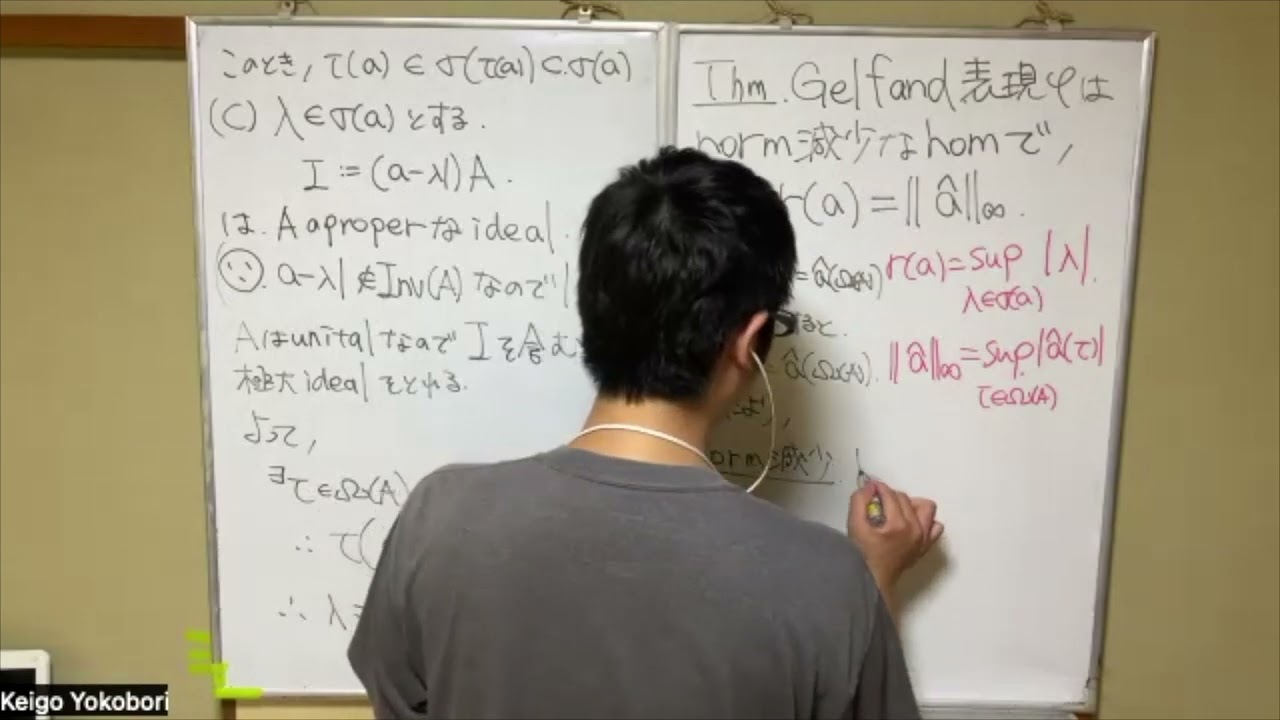 このとき, τ(a) ∈ σ(τ(a)) ⊂ σ(a)
(⊂) λ∈σ(a) とする.
I := (a-λ1)A.
は. A a proper な ideal.
a-λ1 ∉ Inv(A) なので
A は unital なので I を含む
極大 ideal をとれる.
よって,
∃τ∈Ω(A)
∴ τ(
∴ λ=
Thm. Gelfand 表現 φ は
norm 減少な hom で,
r(a) = ‖â‖∞.
= â(Ω(A))
r(a) = sup |λ|.
λ∈σ(a)
すると.
= â(Ω(A)).
‖â‖∞ = sup |â(τ)|
τ∈Ω(A)
orm 減少
Keigo Yokobori